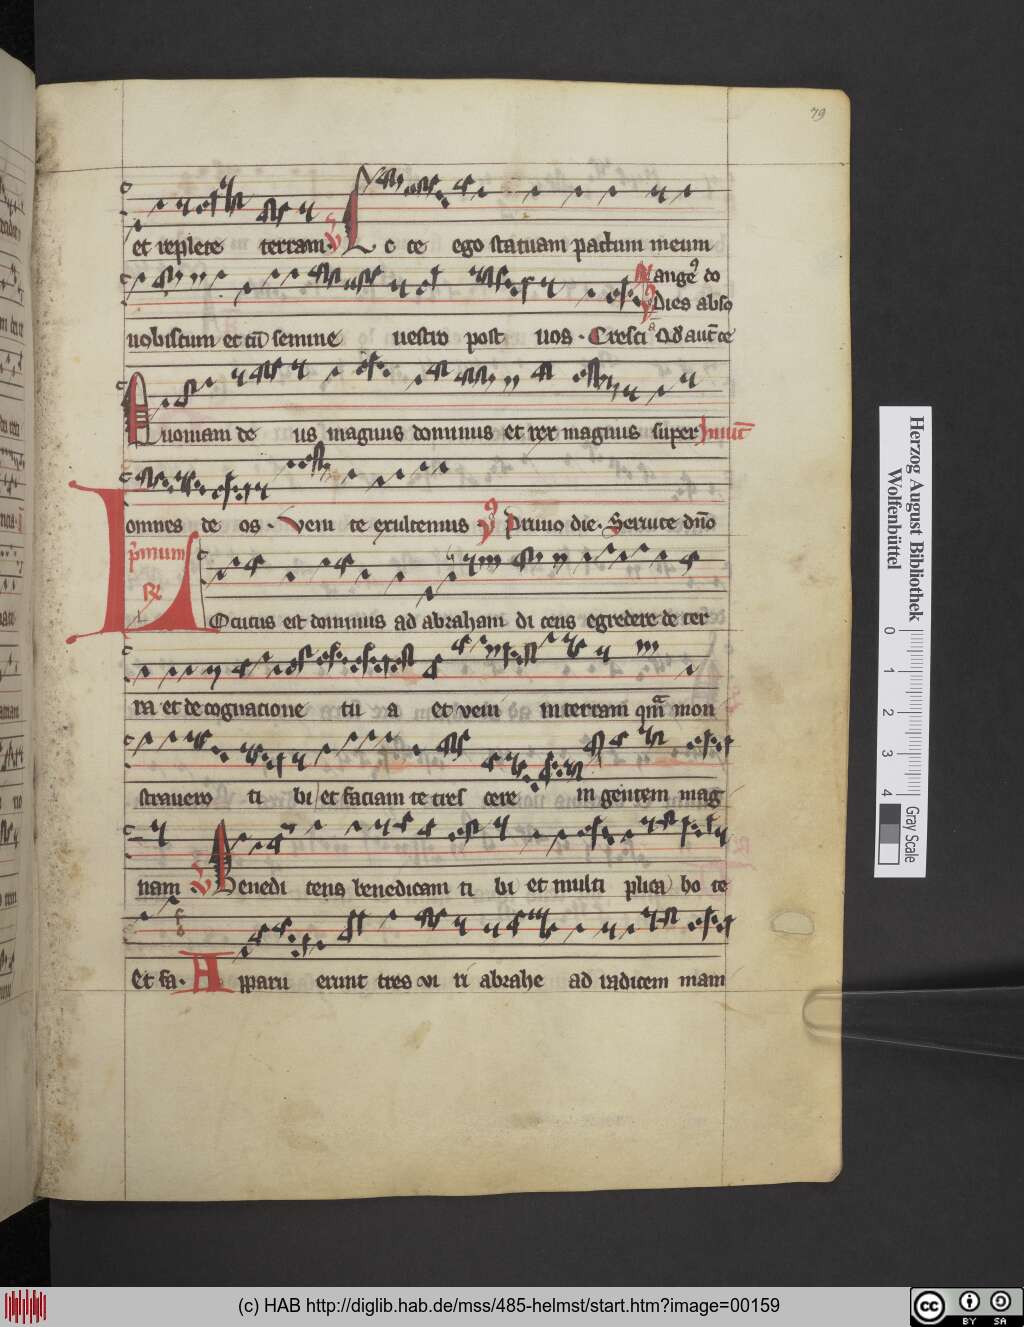 79
et replete terram. V Ecce ego statuam pactum meum
R Pange9 do
V Dies abso
uobiscum et cū semine uestro post uos. Cresci
Quoniam de us magnus dominus et rex magnus super Inuit
omnes de os. Veni te exultemus Primo die. Seruite dn̄o
p̄mum
R
Locutus est dominus ad abraham di cens egredere de ter
ra et de cognacione tu a et veni in terram qm̄ mon
strauero ti bi et faciam te cres cere in gentem mag
nam V Benedi cens benedicam ti bi et multi plica bo te
Et fa. Apparu erunt tres vi ri abrahe ad radicem mam
Herzog August Bibliothek
Wolfenbüttel
0 1 2 3 4
Gray Scale
(c) HAB http://diglib.hab.de/mss/485-helmst/start.htm?image=00159
cc BY SA